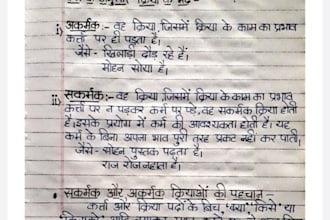 i) अकर्मक :- वह क्रिया जिसमें क्रिया के काम का प्रभाव
कर्ता पर ही पड़ता है।
जैसे - खिलाड़ी दौड़ रहे हैं।
मोहन सोया है।
ii) सकर्मक :- वह क्रिया जिसमें क्रिया के काम का प्रभाव
कर्ता पर न पड़कर कर्म पर पड़े, वह सकर्मक क्रिया होती
है। इसके प्रयोग में कर्म की आवश्यकता होती है। यह
कर्म के बिना अपना भाव पूरी तरह प्रकट नहीं कर पाती।
जैसे - मोहन पुस्तक पढ़ता है।
राज रोज नहाता है।
• सकर्मक और अकर्मक क्रियाओं की पहचान -
कर्ता और क्रिया पदों के बिच, 'क्या' 'किसे' या